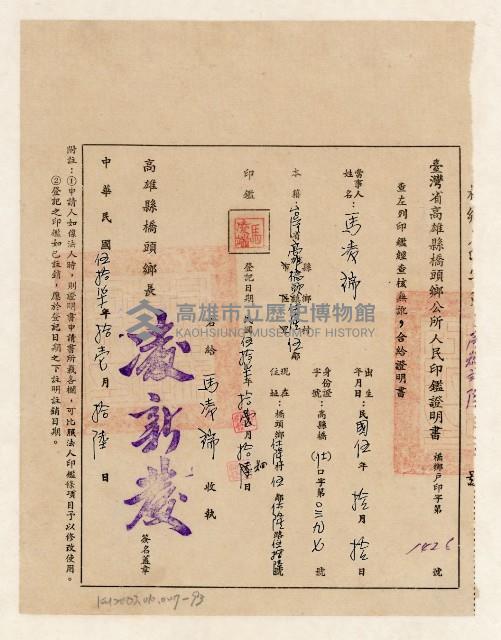 臺灣省高雄縣橋頭鄉公所人民印鑑證明書 橋鄉戶印字第1426號
查左列印鑑經查核無訛,合給證明書
當事人姓名:馬凌瑞
出生年月日:民國伍年拾月拾日
本籍:臺灣省高雄縣橋頭鄉
身份證字號:高縣橋
口字第
號
現在住址:橋頭鄉
印鑑
登記日期:民國伍拾柒年拾壹月拾
日
右給 馬凌瑞 收執
高雄縣橋頭鄉長
簽名蓋章
中華民國伍拾柒年拾壹月拾陸日
附註:①申請人如係法人時,則證明書申請書所載各欄,可比照法人印鑑條項目予以修改使用。
②登記之印鑑如已註銷,應於登記日期之下註明註銷日期。
高雄市立歷史博物館
KAOHSIUNG MUSEUM OF HISTORY